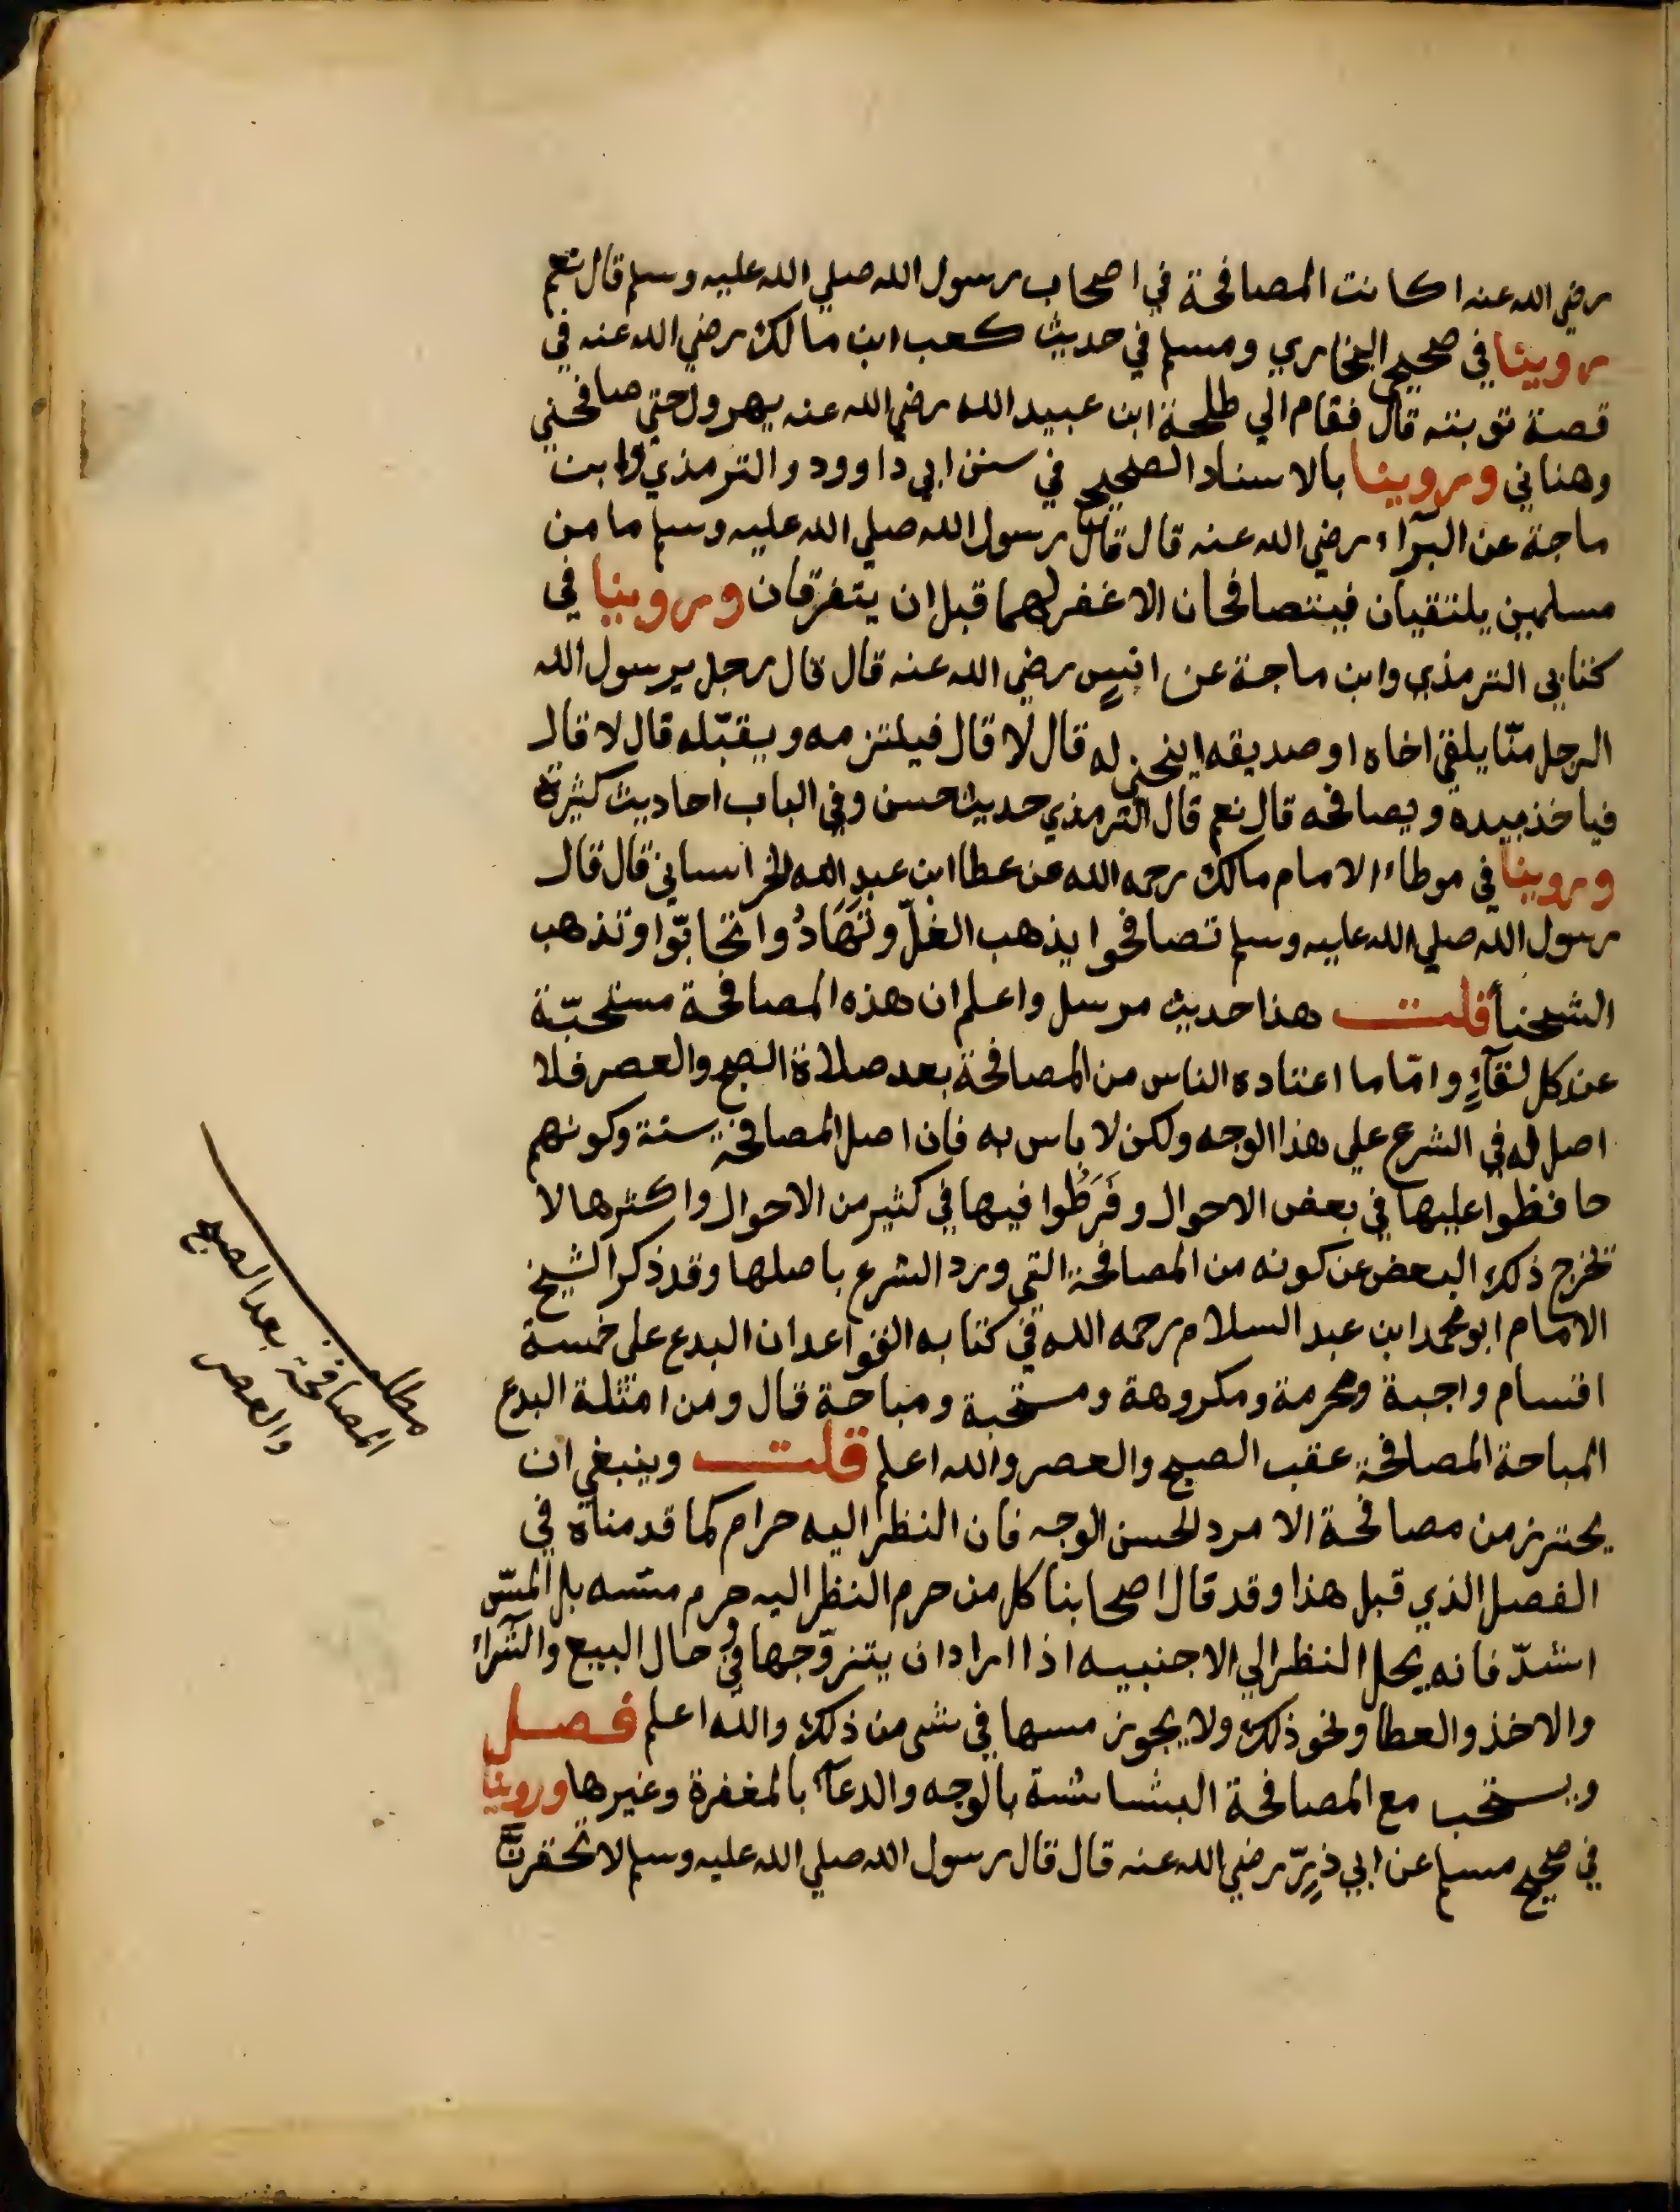 رضي الله عنه اكانت المصافحة في اصحاب رسول الله صلي الله عليه وسلم قال نعم
روينا في صحيح البخاري ومسلم في حديث كعب ابن مالك رضي الله عنه في
قصة توبته قال فقام الي طلحة ابن عبيد الله رضي الله عنه يهرول حتي صافحني
وهناني وروينا بالاسناد الصحيح في سنن ابي داوود والترمذي وابن
ماجة عن البرآء رضي الله عنه قال قال رسول الله صلي الله عليه وسلم ما من
مسلمين يلتقيان فيتصافحان الا غفر لهما قبل ان يتفرقان وروينا في
كتابي الترمذي وابن ماجة عن انيسٍ رضي الله عنه قال قال رجل يرسول الله
الرجل منّا يلقي اخاه او صديقه اينحني له قال لا قال فيلتزمه ويقبّله قال لا قال
فياخذ بيده ويصافحه قال نعم قال الترمذي حديث حسن وفي الباب احاديث كثيرة
وروينا في موطاء الامام مالك رحمه الله عن عطا ابن عبد الله الخراساني قال قال
رسول الله صلي الله عليه وسلم تصافحوا يذهب الغلّ وتَهَادُوا تحابّوا وتذهب
الشحنأ قلت هذا حديث مرسل واعلم ان هذه المصافحة مستحبّة
عند كل لقآءٍ وامّا ما اعتاده الناس من المصافحة بعد صلاة الصبح والعصر فلا
اصل له في الشرع علي هذا الوجه ولكن لا باس به فان اصل المصافحة سنة وكونهم
حافظوا عليها في بعض الاحوال وفَرَطُوا فيها في كثير من الاحوال واكثرها لا
تخرج ذلك البعض عن كونه من المصافحة التي ورد الشرع باصلها وقد ذكر الشيخ
الامام ابو محمد ابن عبد السلام رحمه الله في كتابه القواعد ان البدع على خمسة
اقسام واجبة ومحرمة ومكروهة ومستحبة ومباحة قال ومن امثلة البدع
المباحة المصافحة عقب الصبح والعصر والله اعلم قلت وينبغي ان
يحترز من مصافحة الامرد الحسن الوجه فان النظر اليه حرام كما قدمناه في
الفصل الذي قبل هذا وقد قال اصحابنا كل من حرم النظر اليه حرم مسّه بل المسّ
اشدّ فانه يحل النظر الي الاجنبيه اذا اراد ان يتزوّجها وفي حال البيع والشرآء
والاخذ والعطا ونحو ذلك ولا يجوز مسها في شى من ذلك والله اعلم فصل
ويستحب مع المصافحة البشاشة بالوجه والدعآ بالمغفرة وغيرها وروينا
في صحيح مسلم عن ابي ذرٍّ رضي الله عنه قال قال رسول الله صلي الله عليه وسلم لا تحقرنّ
مطلب
المصافحة بعد الصبح
والعصر